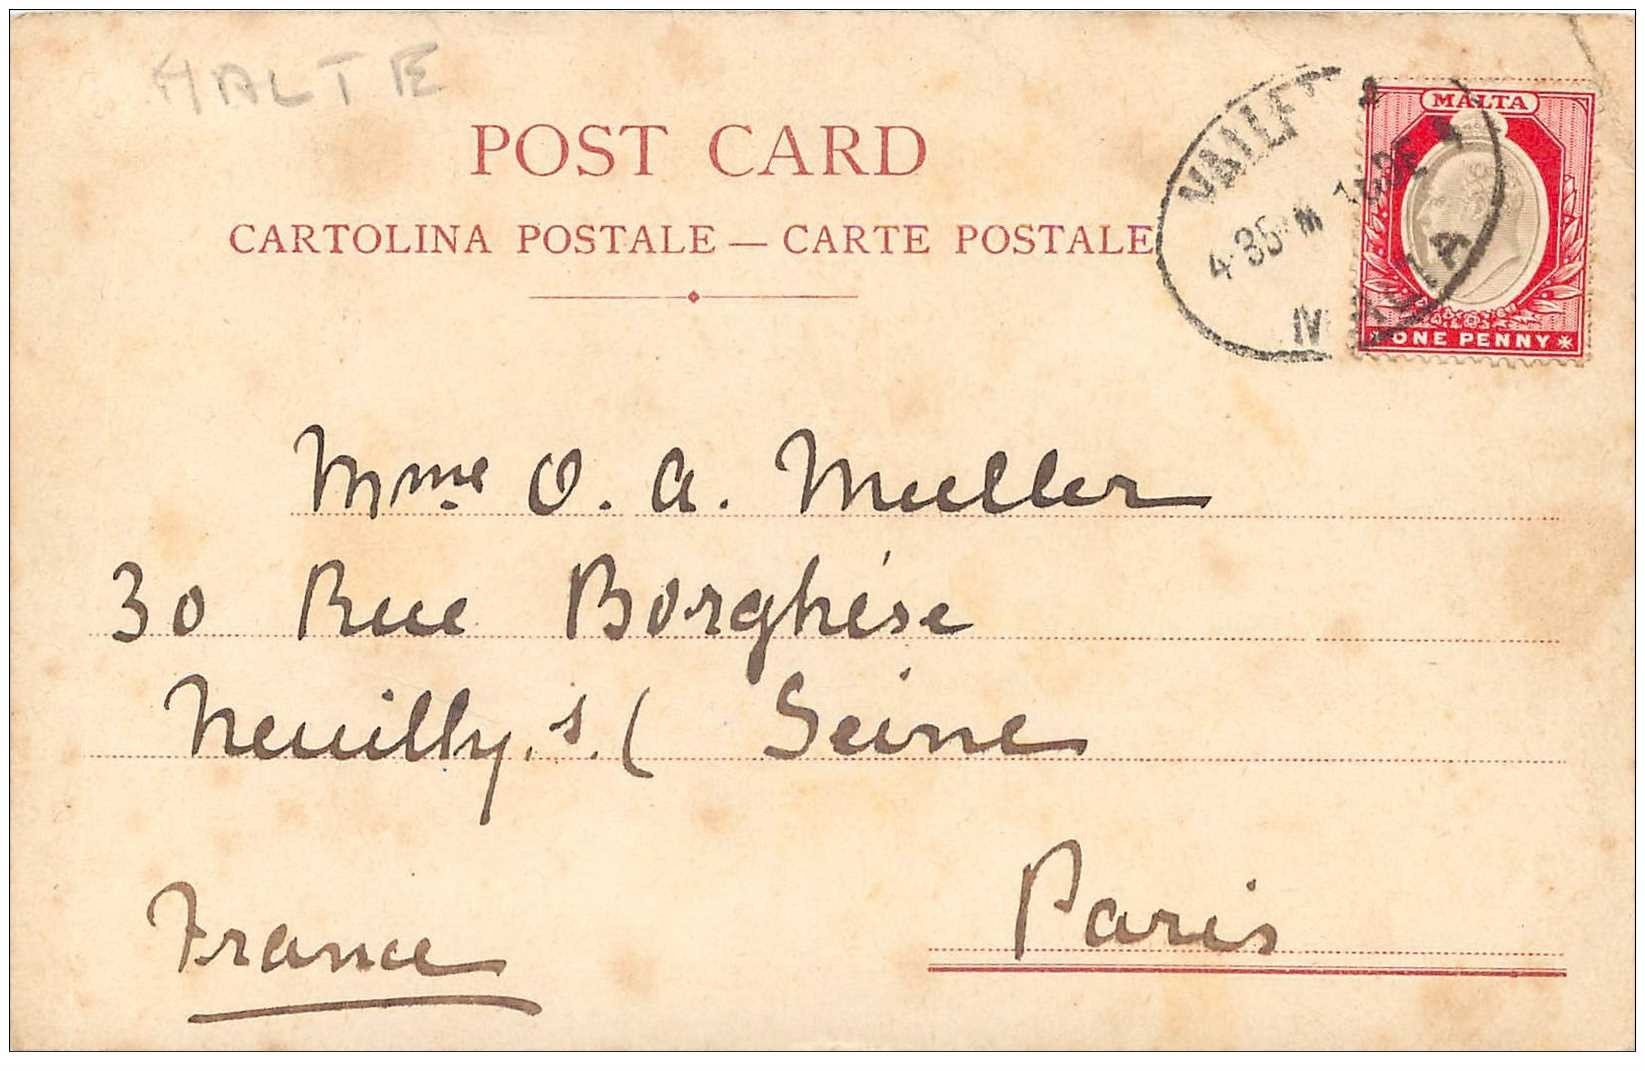 MALTE
POST CARD
CARTOLINA POSTALE — CARTE POSTALE
MALTA
ONE PENNY
4·35 M
MALTA
Mme O. A. Muller
30 Rue Borghèse
Neuilly s/ Seine
Paris
France